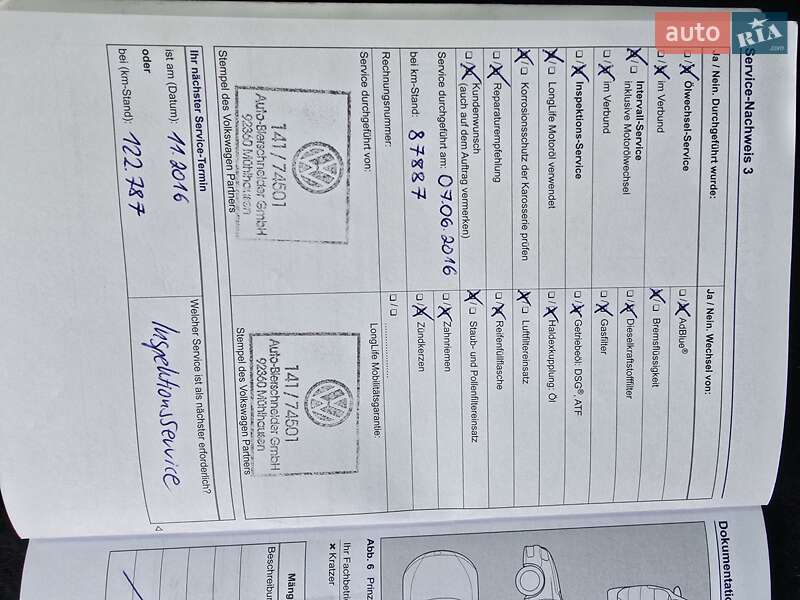 auto RIA .com
Service-Nachweis 3
Ja / Nein. Durchgeführt wurde:
☐/☒ Ölwechsel-Service
☒/☐ im Verbund
☒/☐ Intervall-Service
inklusive Motorölwechsel
☐/☒ im Verbund
☐/☒ Inspektions-Service
☒/☐ LongLife Motoröl verwendet
☒/☐ Korrosionsschutz der Karosserie prüfen
☐/☒ Reparaturempfehlung
☐/☒ Kundenwunsch
(auch auf dem Auftrag vermerken)
Service durchgeführt am: 07.06.2016
bei km-Stand: 87887
Rechnungsnummer:
Service durchgeführt von:
141 / 74501
Auto-Bierschneider GmbH
92360 Mühlhausen
Stempel des Volkswagen Partners
Ja / Nein. Wechsel von:
☐/☒ AdBlue®
☒/☐ Bremsflüssigkeit
☐/☒ Dieselkraftstofffilter
☐/☒ Gasfilter
☐/☒ Getriebeöl: DSG®, ATF
☐/☒ Haldexkupplung: Öl
☒/☐ Luftfiltereinsatz
☐/☒ Reifenfüllflasche
☒/☐ Staub- und Pollenfiltereinsatz
☐/☒ Zahnriemen
☐/☒ Zündkerzen
☐/☐ ........................
LongLife Mobilitätsgarantie:
141 / 74501
Auto-Bierschneider GmbH
92360 Mühlhausen
Stempel des Volkswagen Partners
Ihr nächster Service-Termin
ist am (Datum): 11.2016
oder
bei (km-Stand): 122.787
Welcher Service ist als nächster erforderlich?
Inspektionsservice
4
Dokumentatio
Abb. 6 Prinz
Ihr Fachbetrie
× Kratzer
Mäng
Beschreibun